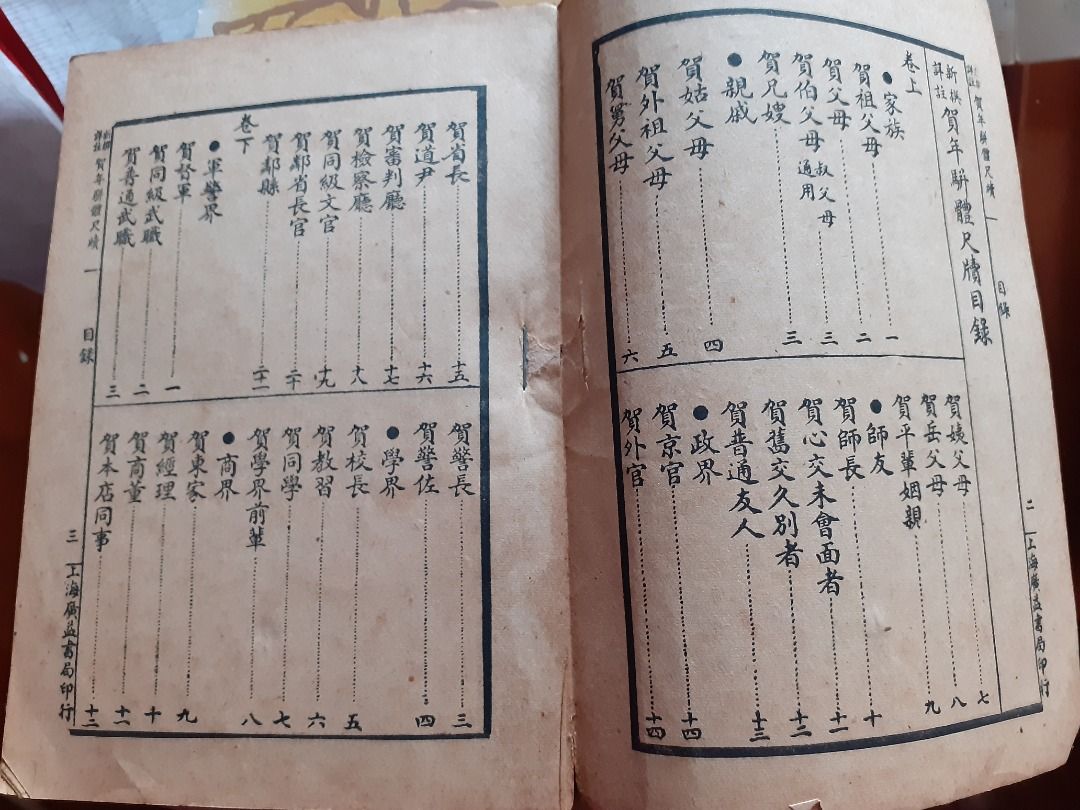 新撰
詳註
賀年駢體尺牘目錄
卷上
●家族
賀祖父母 一
賀父母 二
賀伯父母 叔父母通用 三
賀兄嫂 三
●親戚
賀姑父母 四
賀外祖父母 五
賀舅父母 六
賀姨父母 七
賀岳父母 八
賀平輩姻親 九
●師友
賀師長 十
賀心交未會面者 十一
賀舊交久別者 十二
賀普通友人 十三
●政界
賀京官 十四
賀外官 十四
賀年駢體尺牘 一 目錄
二 上海廣益書局印行
賀省長 十五
賀道尹 十六
賀審判廳 十七
賀檢察廳 十八
賀同級文官 十九
賀鄰省長官 二十
賀鄰縣 二十一
卷下
●軍警界
賀督軍 一
賀同級武職 二
賀普通武職 三
賀警長 三
賀警佐 四
●學界
賀校長 五
賀教習 六
賀同學 七
賀學界前輩 八
●商界
賀東家 九
賀經理 十
賀商董 十一
賀本店同事 十二
賀年駢體尺牘 一 目錄
三 上海廣益書局印行